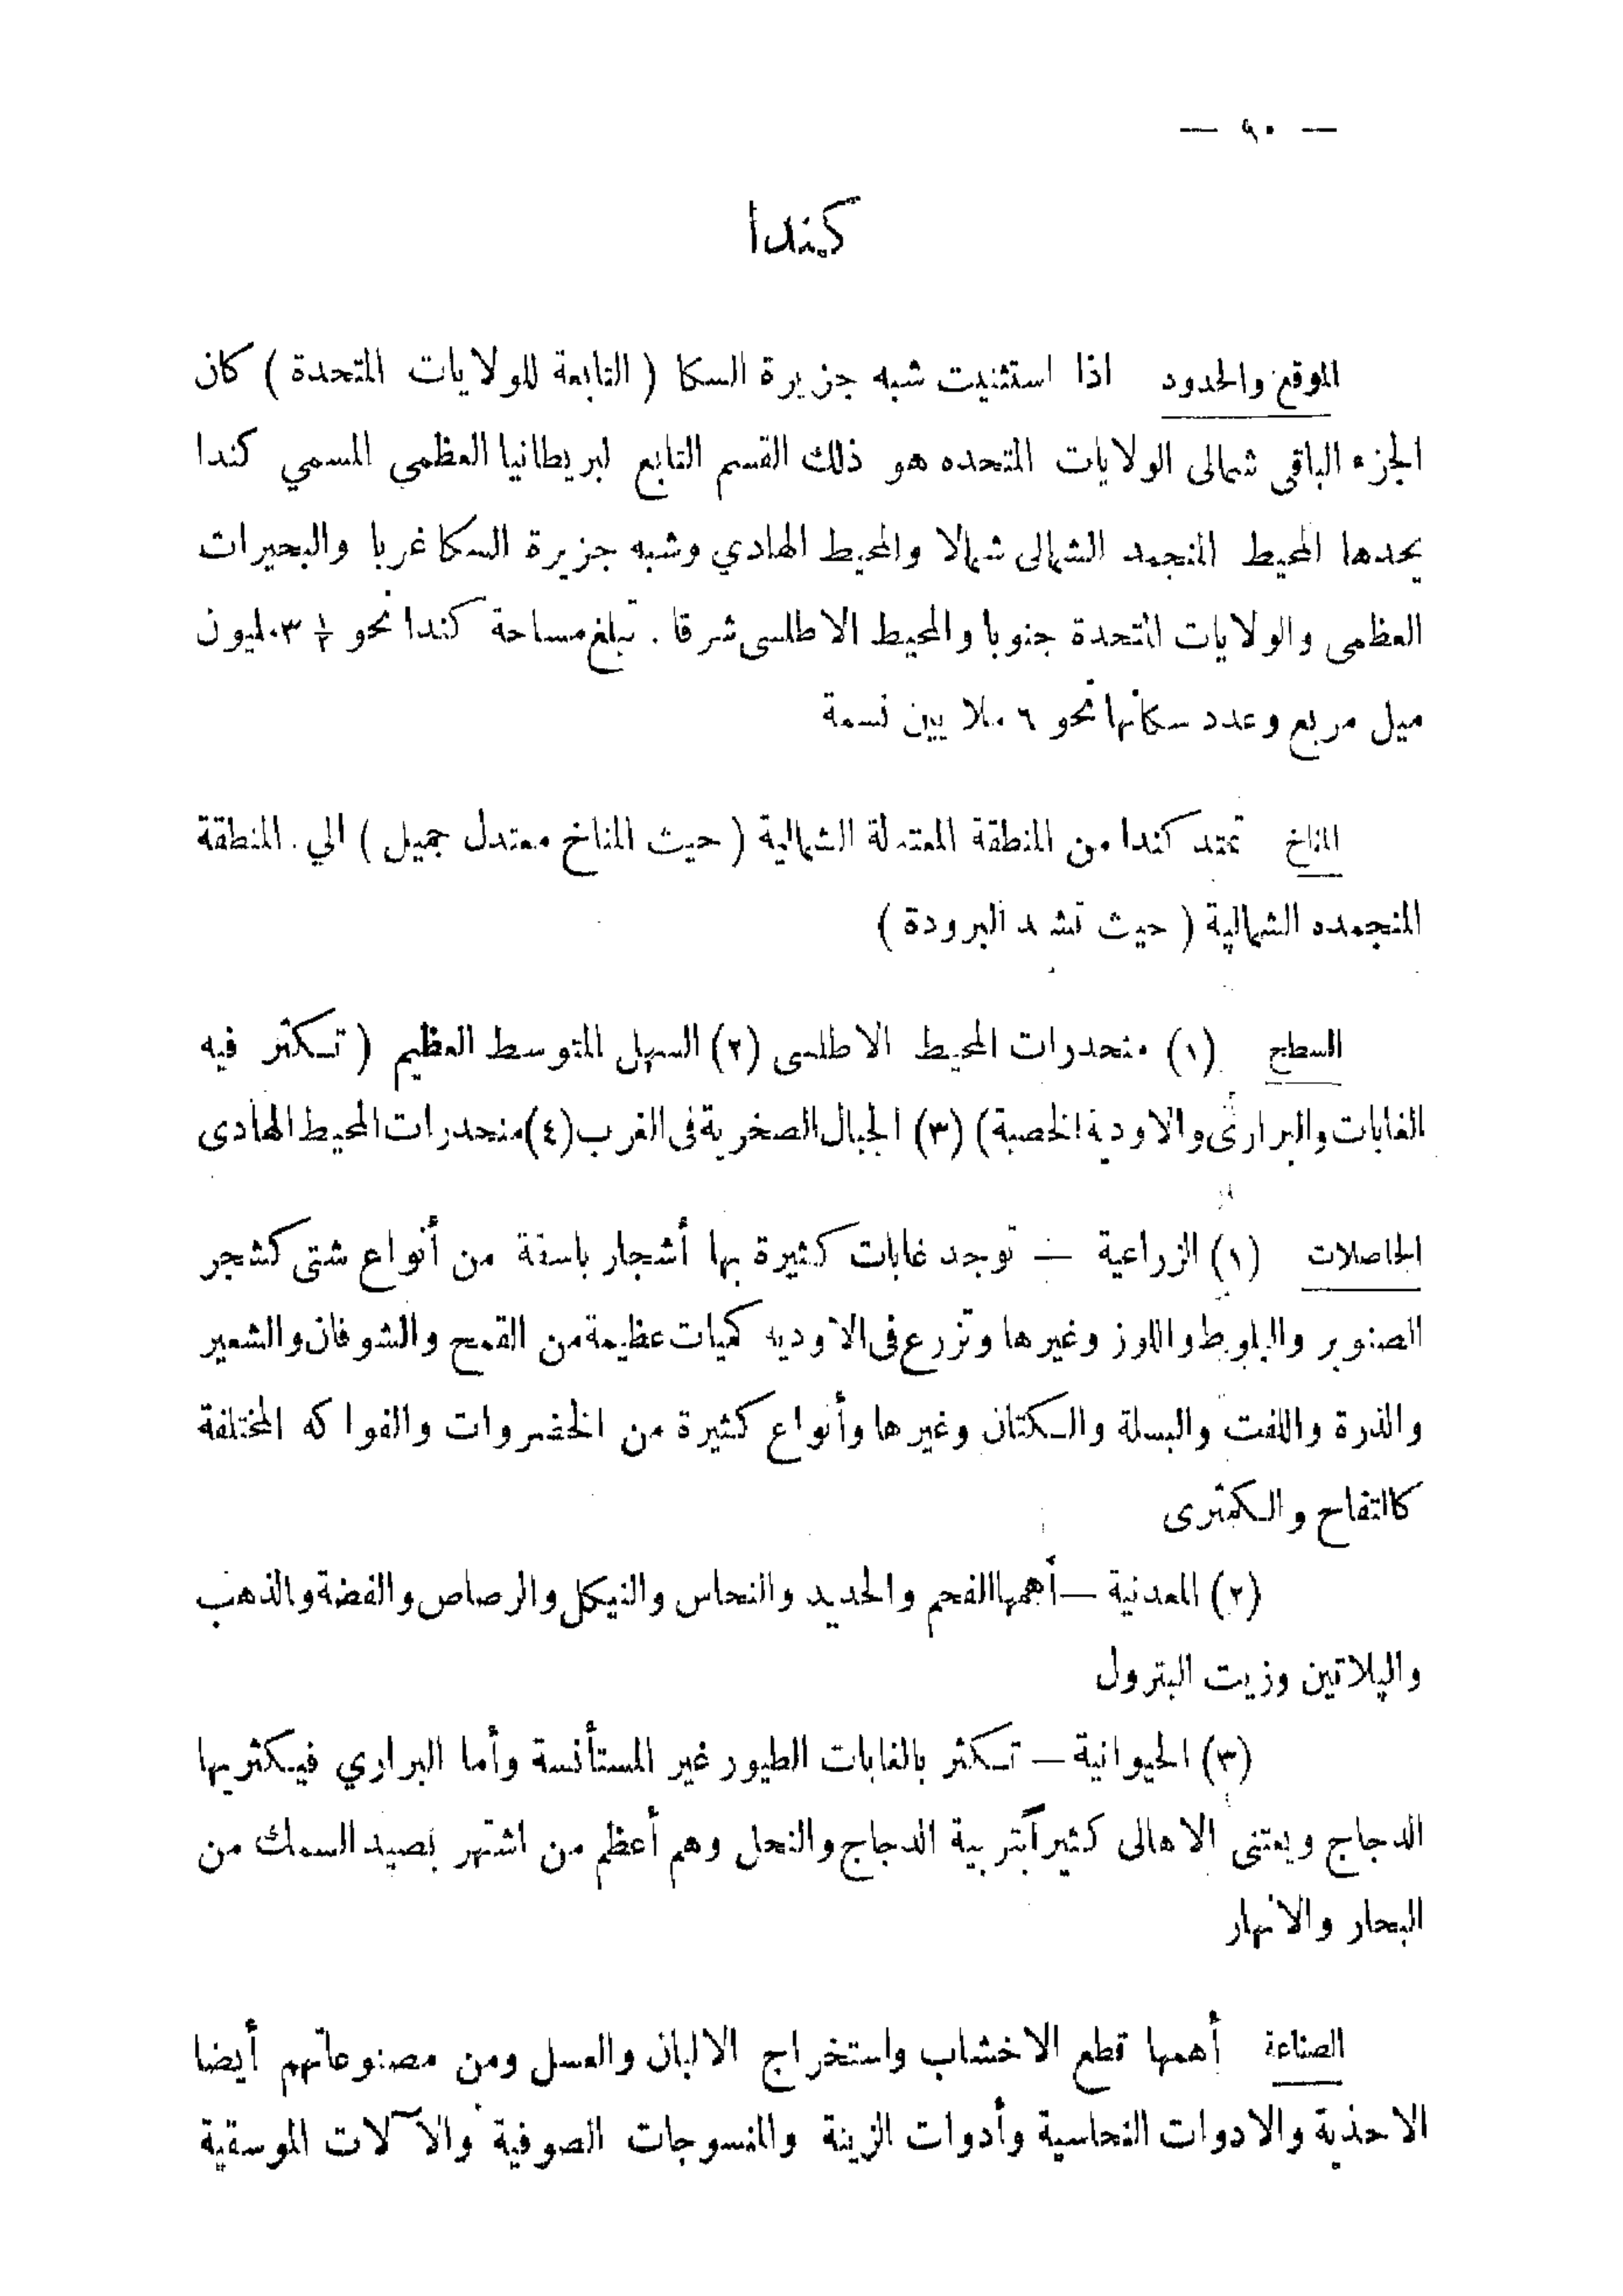 — ٩٠ —
كندا
الموقع والحدود اذا استثنيت شبه جزيرة السكا ( التابعة للولايات المتحدة ) كان
الجزء الباقى شمالى الولايات المتحده هو ذلك القسم التابع لبريطانيا العظمى المسمي كندا
يحدها المحيط المنجمد الشمالى شمالا والمحيط الهادي وشبه جزيرة السكا غربا والبحيرات
العظمى والولايات المتحدة جنوبا والمحيط الاطلسى شرقا . تبلغ مساحة كندا نحو ½ ٣ مليون
ميل مربع وعدد سكانها نحو ٦ ملايين نسمة
المناخ تمتد كندا من المنطقة المعتدلة الشمالية ( حيث المناخ معتدل جميل ) الي المنطقة
المنجمده الشمالية ( حيث تشتد البرودة )
السطح (١) منحدرات المحيط الاطلسى (٢) السهل المتوسط العظيم ( تكثر فيه
الغابات والبرارى والاودية الخصبة ) (٣) الجبال الصخرية فى الغرب (٤) منحدرات المحيط الهادى
الحاصلات (١) الزراعية — توجد غابات كثيرة بها أشجار باسقة من أنواع شتى كشجر
الصنوبر والبلوط واللوز وغيرها وتزرع فى الاوديه كميات عظيمة من القمح والشوفان والشعير
والذرة واللفت والبسلة والكتان وغيرها وأنواع كثيرة من الخضروات والفواكه المختلفة
كالتفاح والكمثرى
(٢) المعدنية — أهمها الفحم والحديد والنحاس والنيكل والرصاص والفضة والذهب
والپلاتين وزيت البترول
(٣) الحيوانية — تكثر بالغابات الطيور غير المستأنسة وأما البراري فيكثر بها
الدجاج ويعتنى الاهالى كثيراً بتربية الدجاج والنحل وهم أعظم من اشتهر بصيد السمك من
البحار والانهار
الصناعة أهمها قطع الاخشاب واستخراج الالبان والعسل ومن مصنوعاتهم أيضا
الاحذية والادوات النحاسية وأدوات الزينة والمنسوجات الصوفية والآلات الموسقية